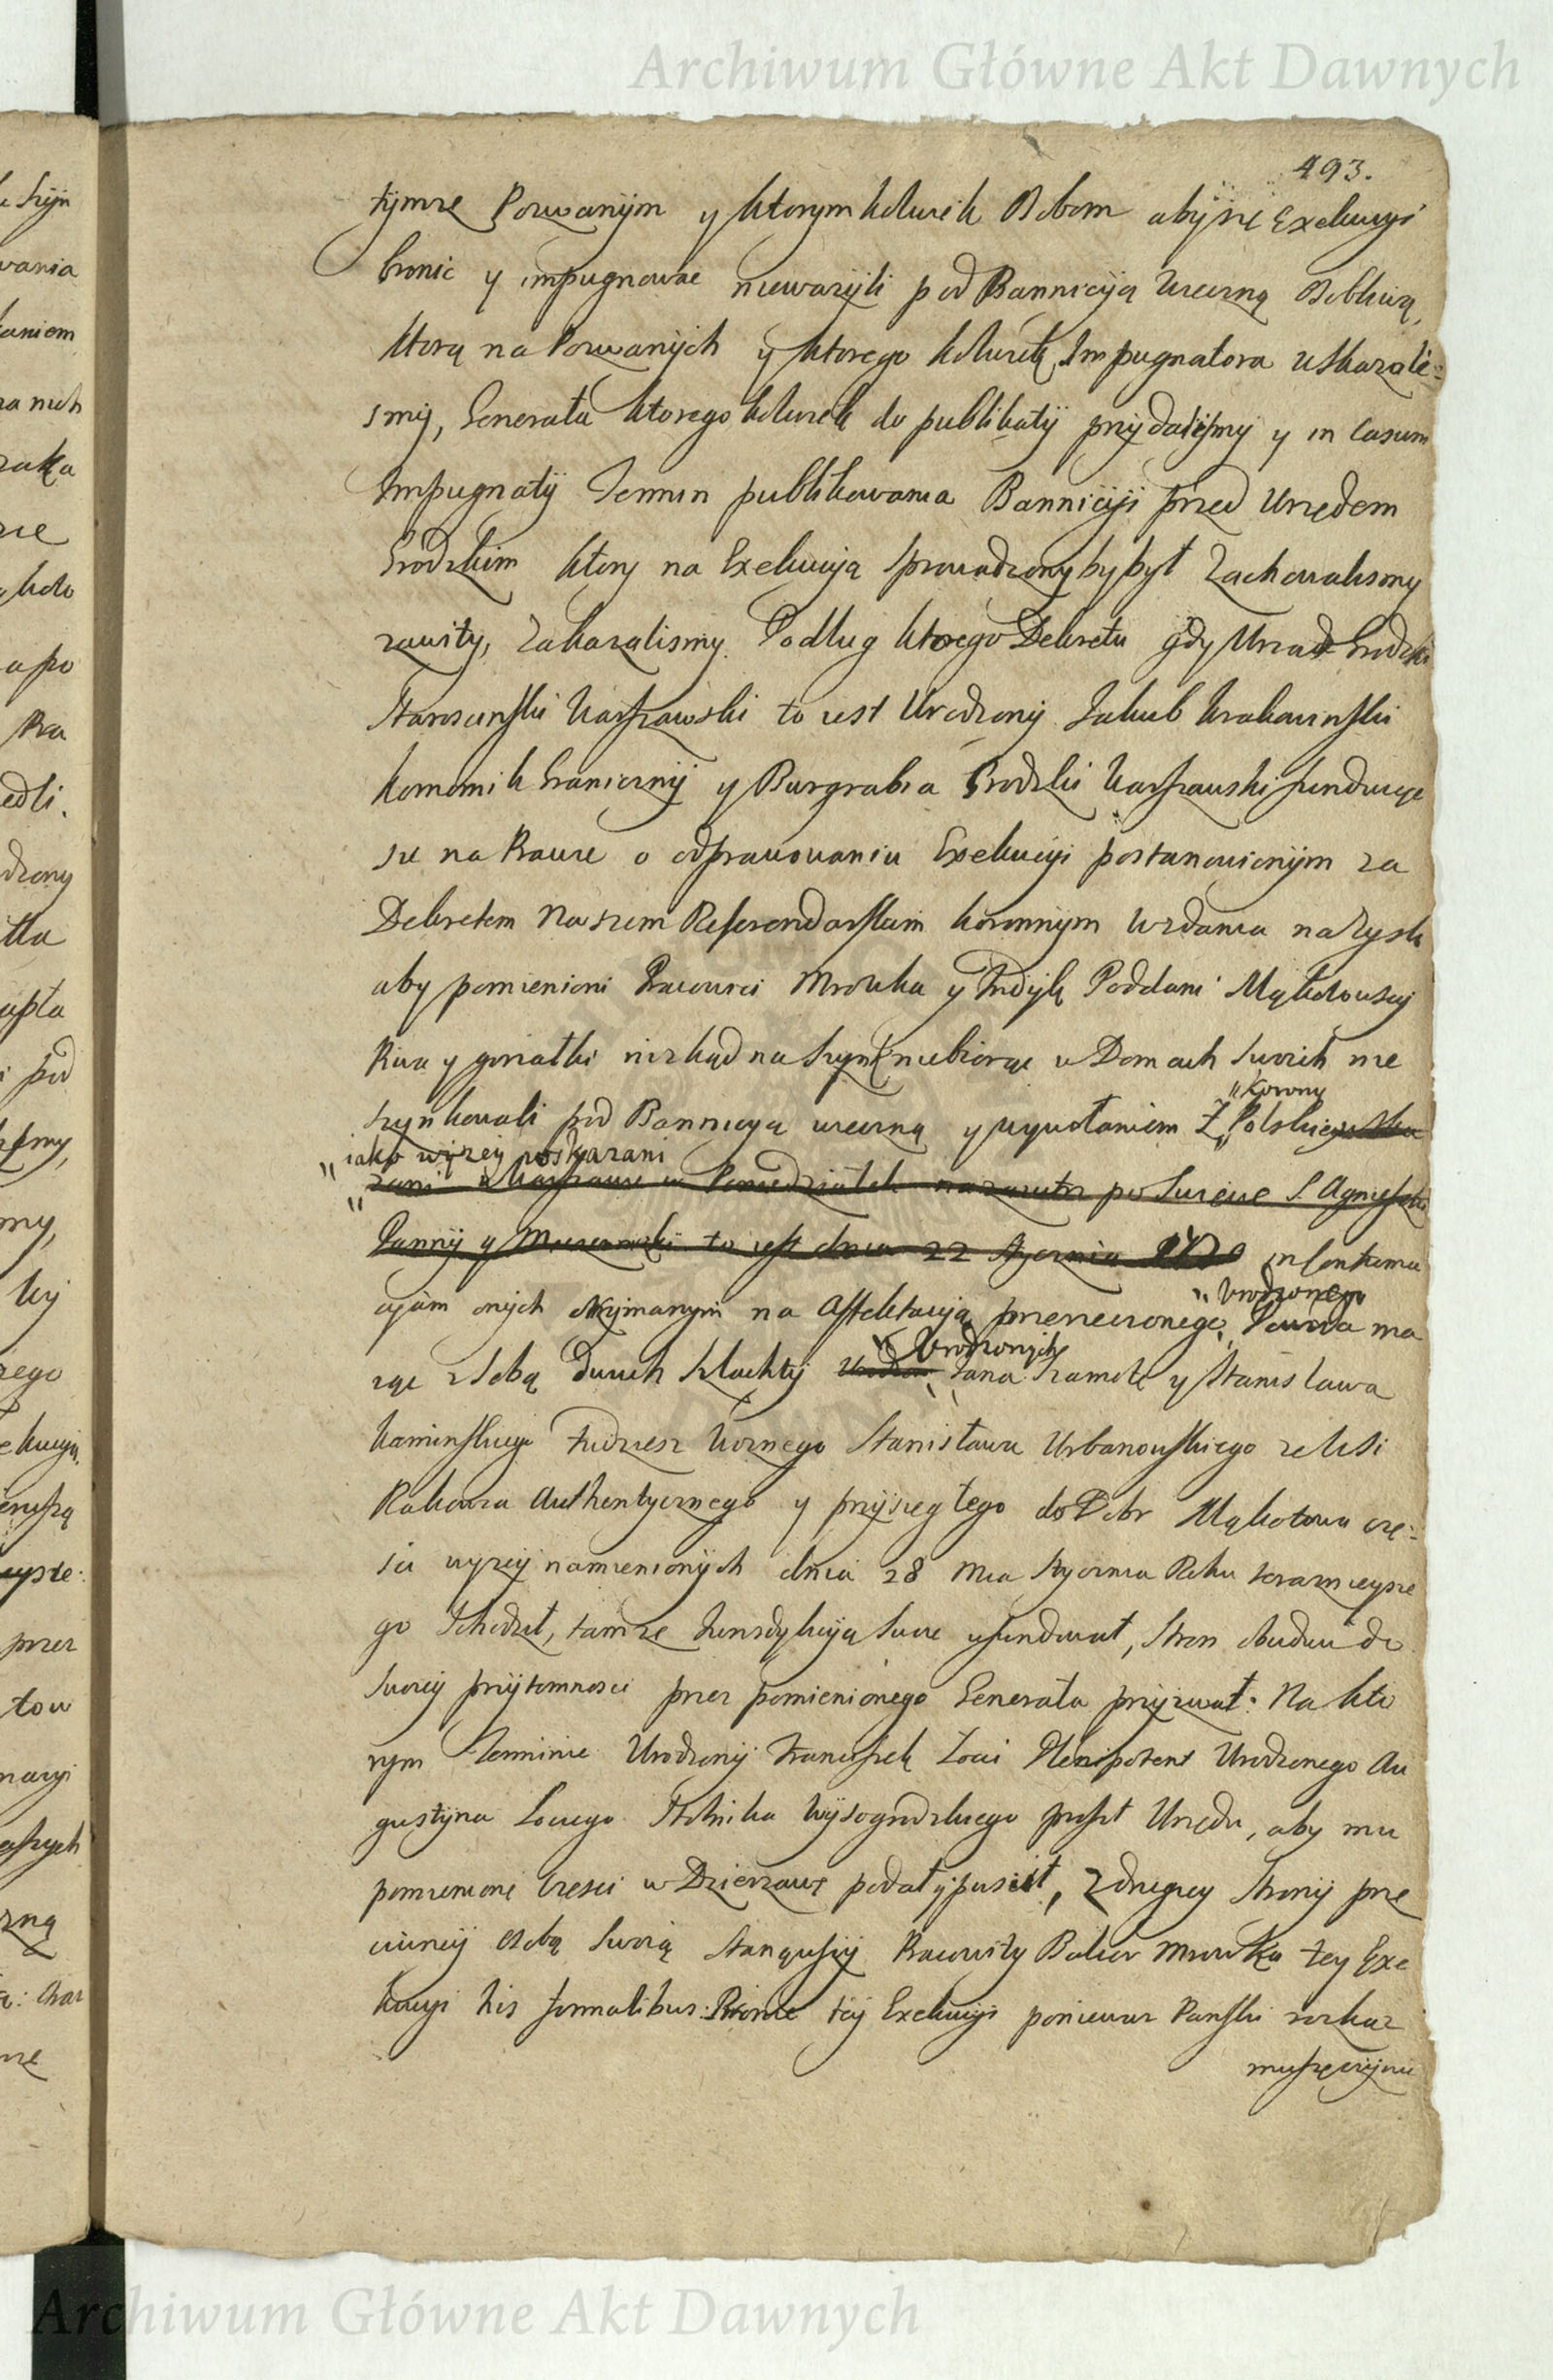 Archiwum Główne Akt Dawnych
493.
tymze Pozwanym y ktorymkolwiek Osobom abysię Exekucyi
bronic y impugnowac niewazyli pod Bannicyą wieczną Osobliwą,
ktorą na Pozwanych y ktorego kolwiek Impugnatora wskazali-
smy, Generała ktorego kolwiek do publikaty przydalismy y in Casum
Impugnaty Termin publikowania Bannicyi przed Urzędem
Grodzkim ktory na Exekucyą sprowadzony by był Zachowalismy
zawity, zakazalismy. Podług ktorego Dekretu gdy Urząd Grodzki
Staroscinski Warszawski to iest Urodzony Jakub Krakowinski
Komornik Graniczny y Burgrabia Grodzki Warszawski funduiąc
się na Prawie o odprawowaniu Exekucyi postanowionym za
Dekretem Naszem Referendarskim Koronnym wzdania na Zysk
aby pomienieni Pracowici Mrowka y Poddani Mąkołowscy
Piwa y gorzałki nizkąd na szynk niebiorąc w Domach swoich nie
"Korony
szynkowali pod Bannicyą wieczną y wywołaniem Z Polskiey
" iako wyzey wskazani
zani w Warszawie w Poniedziałek nazaiutrz po Swięcie S. Agnieszki
Panny y Męczenniczki to iest dnia 22 Stycznia 1720 in Contuma
cyam onych otrzymanym na Affektacyą przerzeczonego
" Urodzonego
Powoda ma
iąc z sobą dwuch Szlachty
" Urodzonych
Jana Szamotę y Stanisława
Kaminskiego tudziesz Woznego Stanisława Urbanowskiego ze Wsi
Rakowca Authentycznego y przysięgłego do Dobr Mąkołowa czę-
sci wyzey namienionych dnia 28 Mca Stycznia Roku teraznieysze
go Zchodził, tamze Jurisdykcyą swoię ufundował, Stron obudwu do
swoiey przytomnosci przez pomienionego Generała przyzwał: Na kto
rym Terminie Urodzony Franciszek Łoci Plenipotent Urodzonego Au
gustyna Locego Stolnika Wyszogrodzkiego prosił Urzędu, aby mu
pomienione Częsci w Dzierzawę podał y puscił, Zdrugiey Strony prze
ciwney Osobą swoią Stanąwszy Pracowity Balcer Mrowka tey Exe
kucyi his formalibus: Bronię tey Exekucyi poniewaz Panski rozkaz
muszęczynic
Archiwum Główne Akt Dawnych